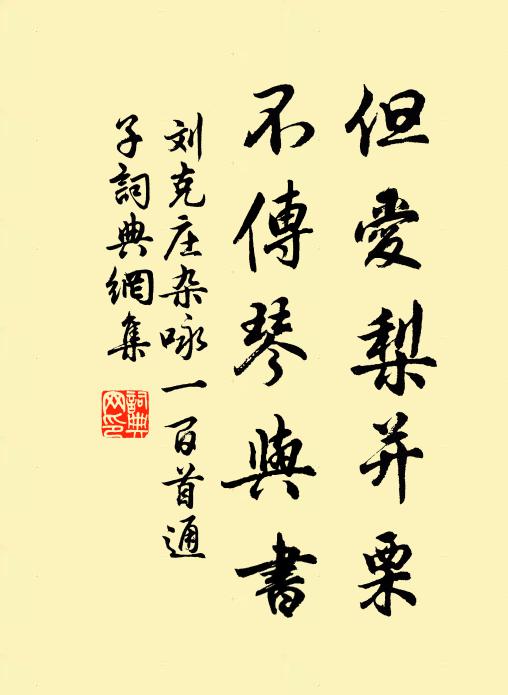 但愛梨并栗
不傳琴與書
刘克庄杂咏一百首通
子詞典網集
詞典网印